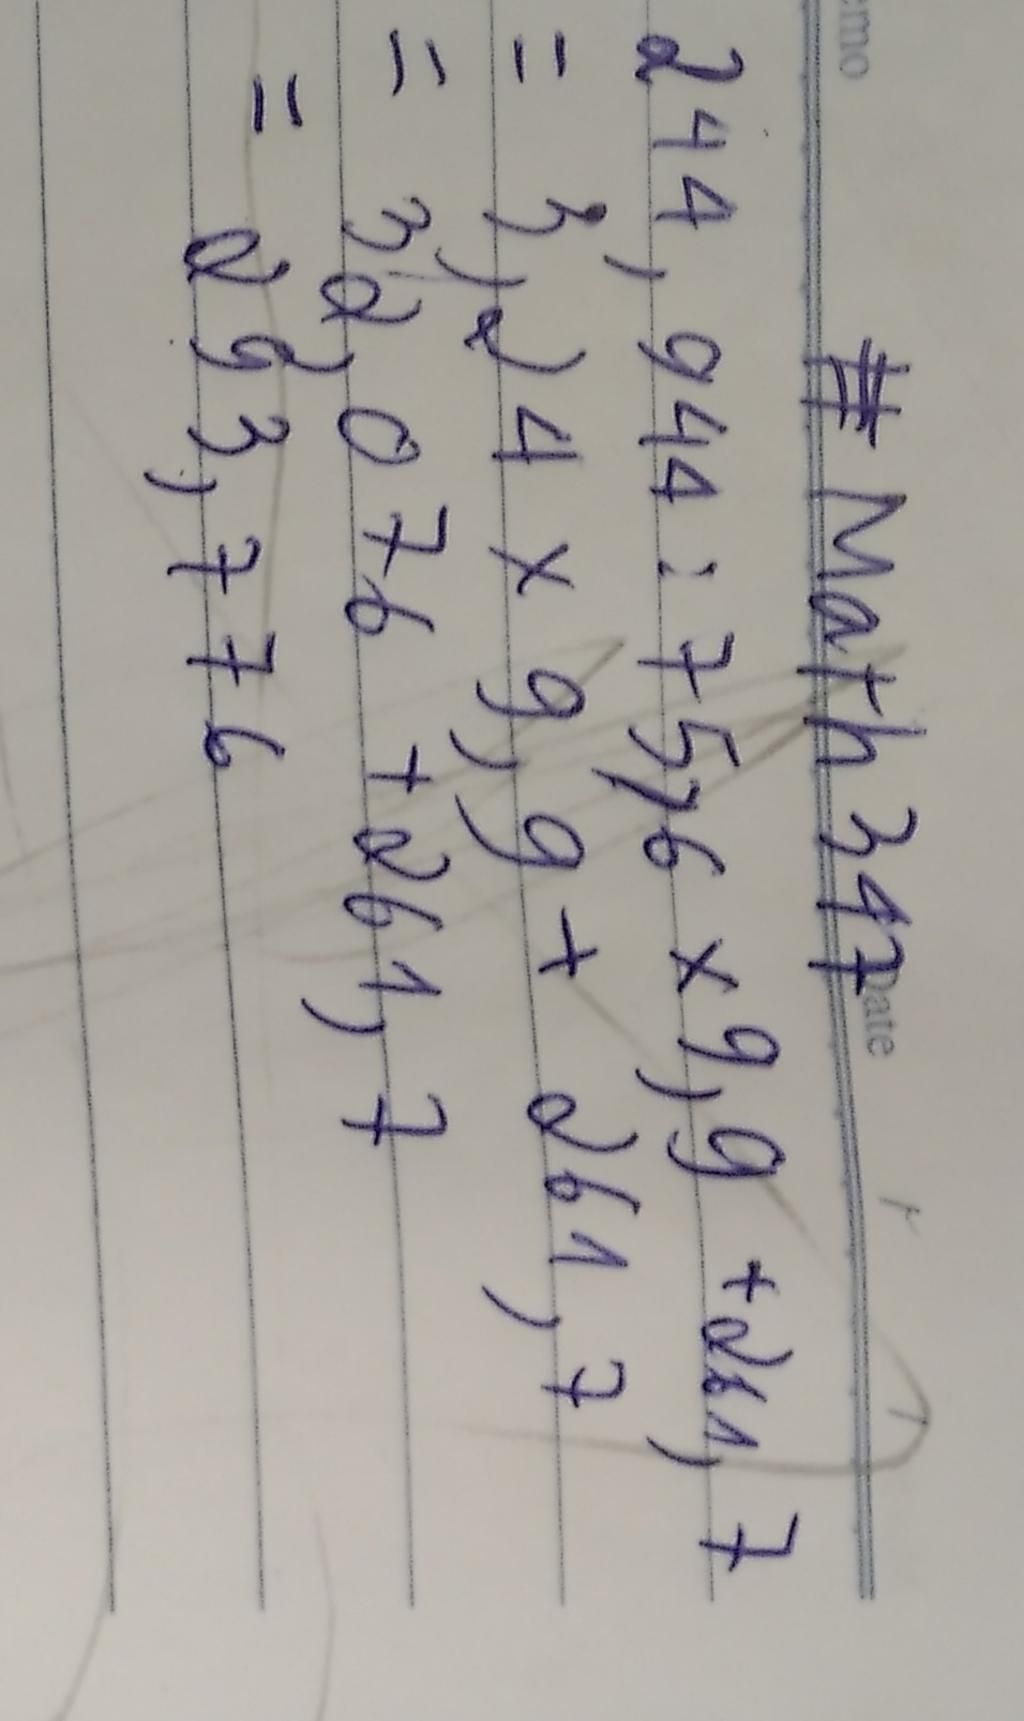 emo Date
# Math 347
244,944 : 75,6 x 9,9 + 261,7
= 3,24 x 9,9 + 261,7
= 32,076 + 261,7
= 293,776